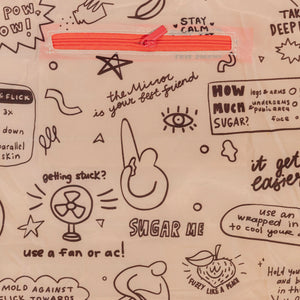 POW
POW!
STAY
CALM
TAKE
DEEPE
the Mirror
is your best friend
FLICK
3x
down
parallel
skin
HOW
MUCH
SUGAR?
legs & arms
underarms
public area
face
it gets
easier
getting stuck?
SUGAR ME
use a fan or ac!
use an
wrapped in
to cool your
MOLD AGAINST
FLICK TOWARDS
FUZZY LIKE A PEACH
Hold you
and b
in th